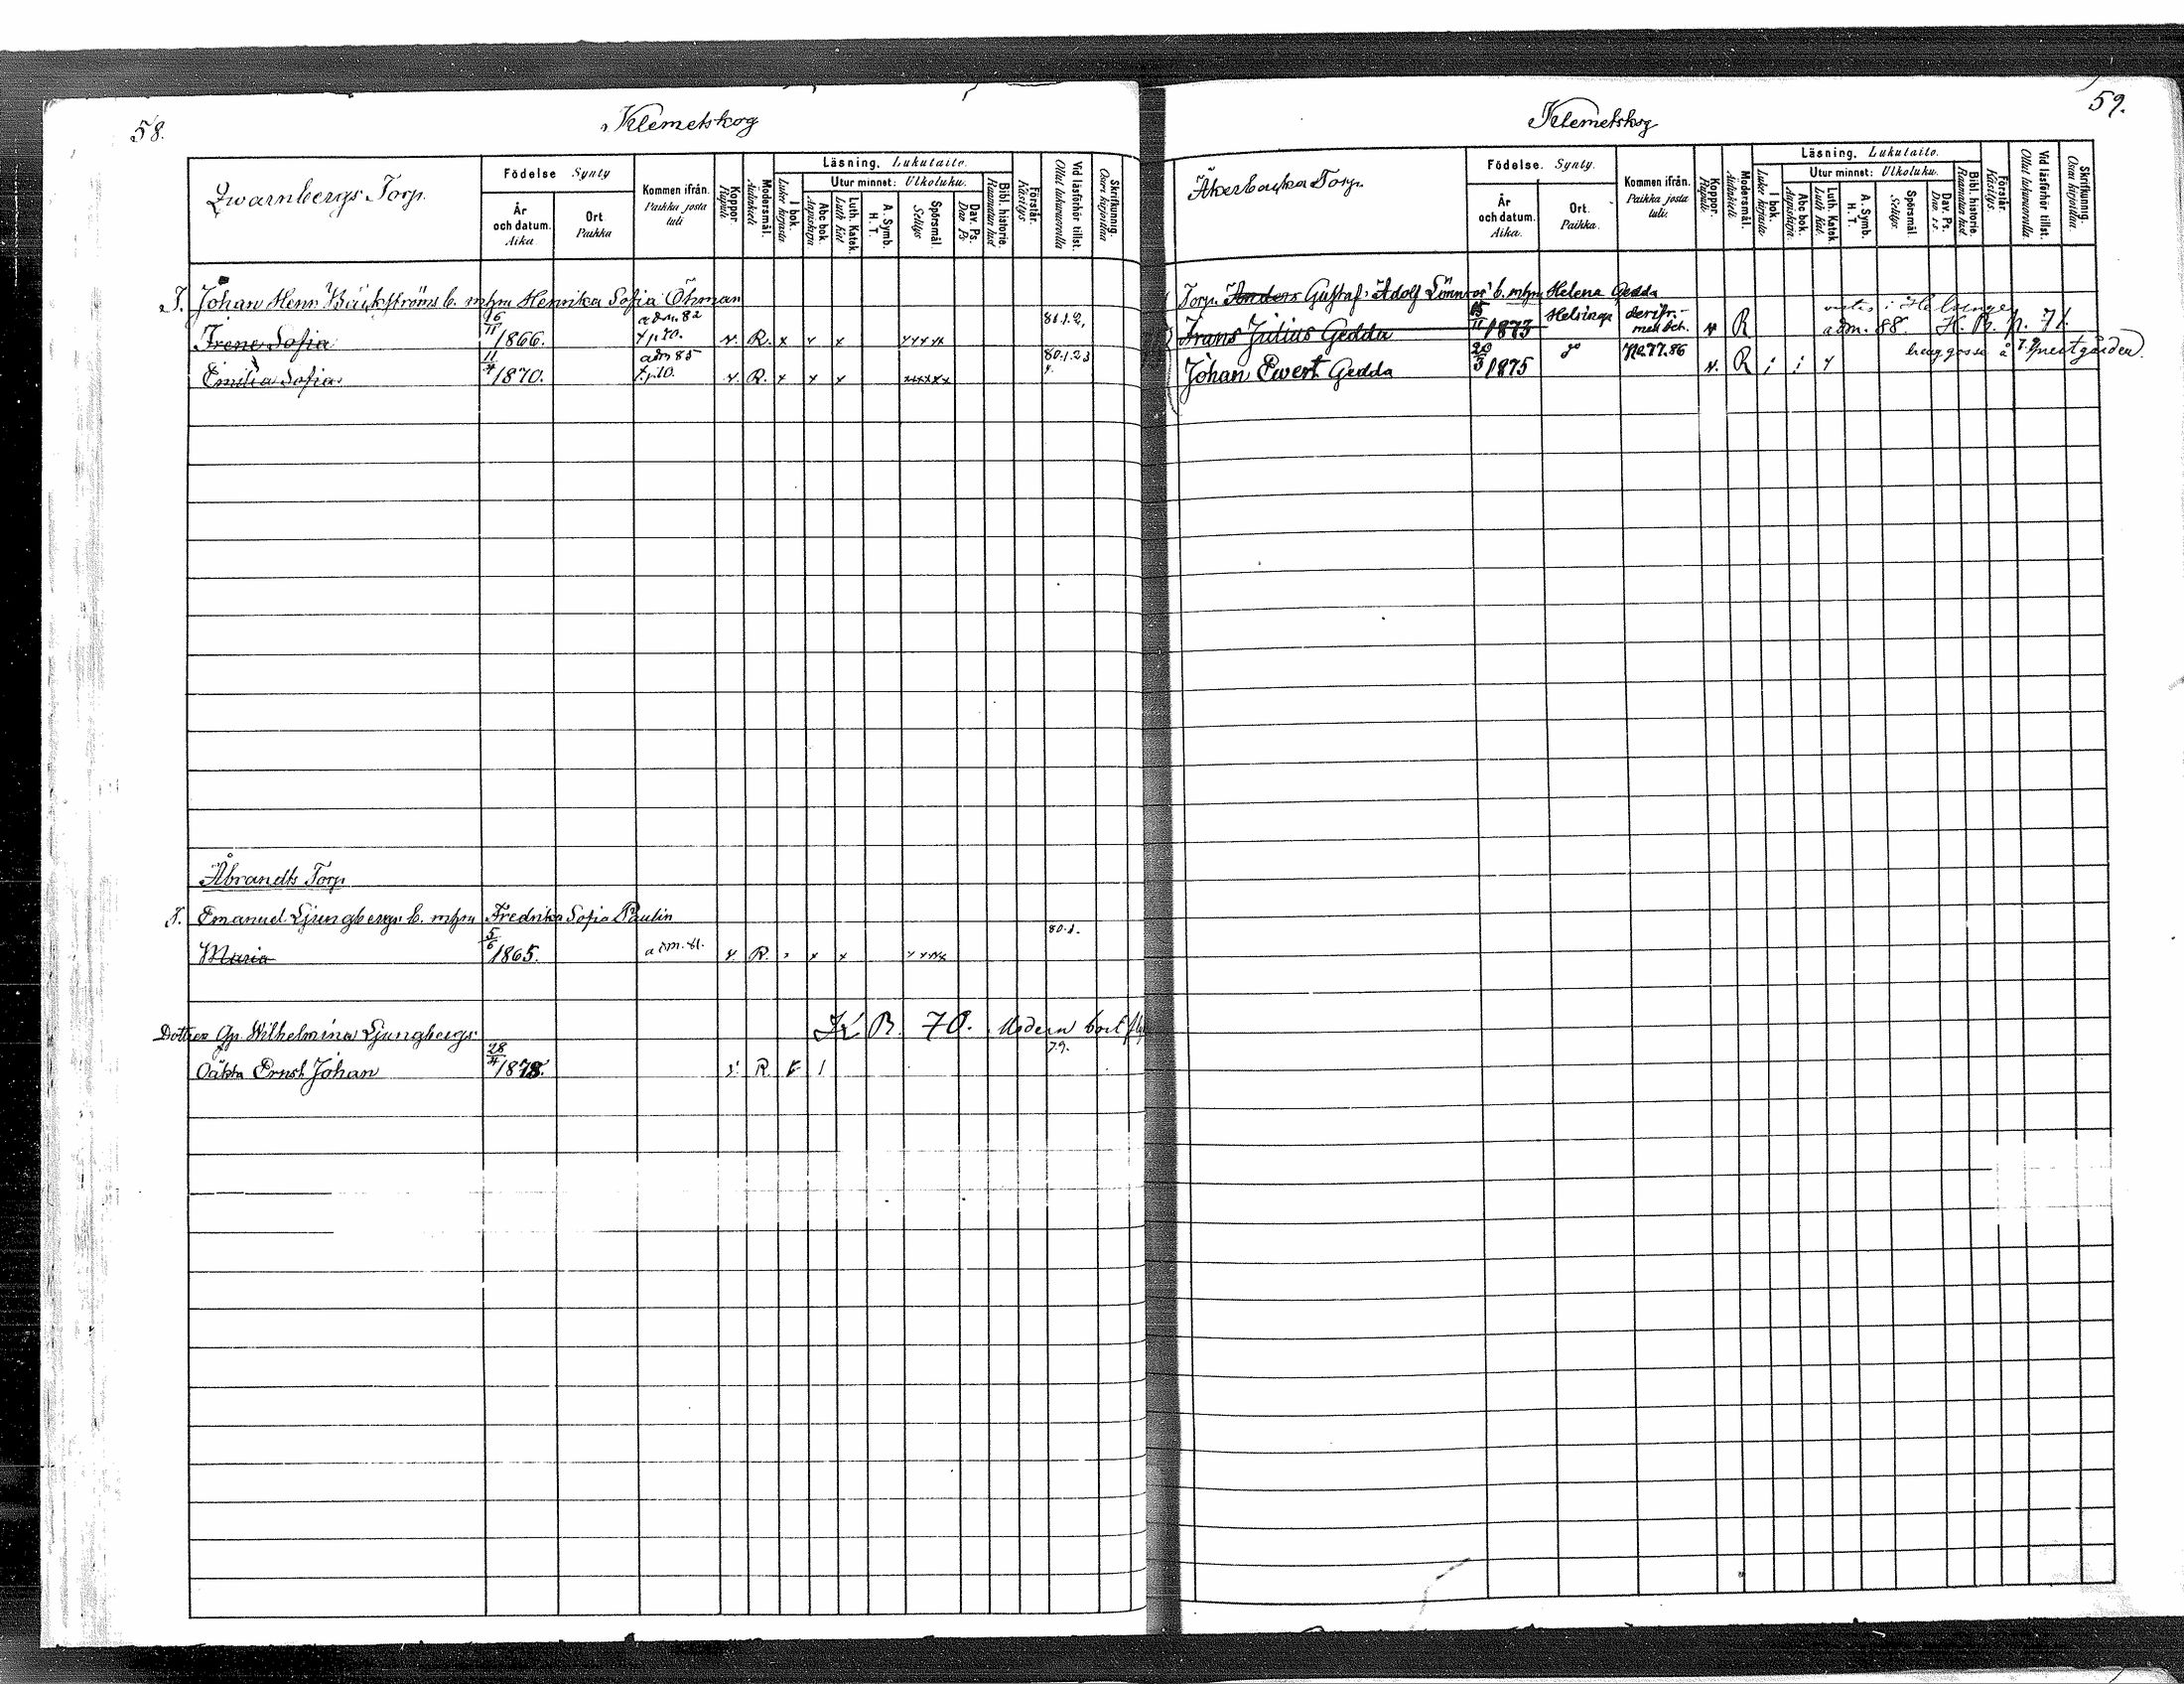 58.
Klemetskog
Qwarnbergs Torp.
Födelse Synty
År och datum. Aika
Ort Paikka
Kommen ifrån. Paikka josta tuli
Koppor. Rupuli
Modersmål. Äidinkieli
Läsning. Lukutaito.
I bok. Lukee kirjasta
Utur minnet: Ulkoluku.
Abc bok. Aapiskirja
Luth. Katek. Luth Kat
A. Symb. H. T.
Spörsmål. Selitys
Dav. Ps. Dav. Ps
Bibl. historie. Raamatun hist.
Förstår. Käsitys
Vid läsförhör tillst. Ollut lukuvuorolla
Skrifkunnig. Osaa kirjoittaa
T. Johan Henr Bäckströms b. m hru Henrika Sofia Öhman
Irene Sofia 16/11 1866. adm. 82 + p. 70. v. R. x x x x x x x 81.1.2,
Emilia Sofia 11/4 1870. adm 85 + p. 10. v. R. x x x x x x x x 80.1.2 3
Åbrandts Torp
T. Emanuel Ljungbergs b. m hru Fredrika Sofia Paulin
Maria 5/6 1865. adm. 81. v. R. x x x x x x x 80.1.
Dottren Gp. Wilhelmina Ljungbergs K B. 70. Modern bort
Oäkta Ernst Johan 28/4 1878. R. 79.
59.
Klemetskog
Åkerbacka Torp.
Födelse. Synty.
År och datum. Aika.
Ort. Paikka.
Kommen ifrån. Paikka josta tuli.
Koppor. Rupuli.
Modersmål. Äidinkieli.
Läsning. Lukutaito.
I bok. Lukee kirjasta.
Utur minnet: Ulkoluku.
Abc bok. Aapiskirja.
Luth. Katek. Luth Kat.
A. Symb. H. T.
Spörsmål. Selitys.
Dav. Ps.
Bibl. historie. Raamatun hist
Förstår. Käsitys.
Vid läsförhör tillst. Ollut lukuvuorolla
Skrifkunnig. Osaa kirjoittaa.
Torp. Anders Gustaf Adolf Lönnros b. m hru Helena Gedda
Frans Julius Gedda 15/11 1873 Helsinge derifr. med bet. v R vistas i Helsinge adm. 88. K. B. p. 71.
Johan Ewert Gedda 20/3 1875 do No 77. 86 v. R gosse å prestgården.